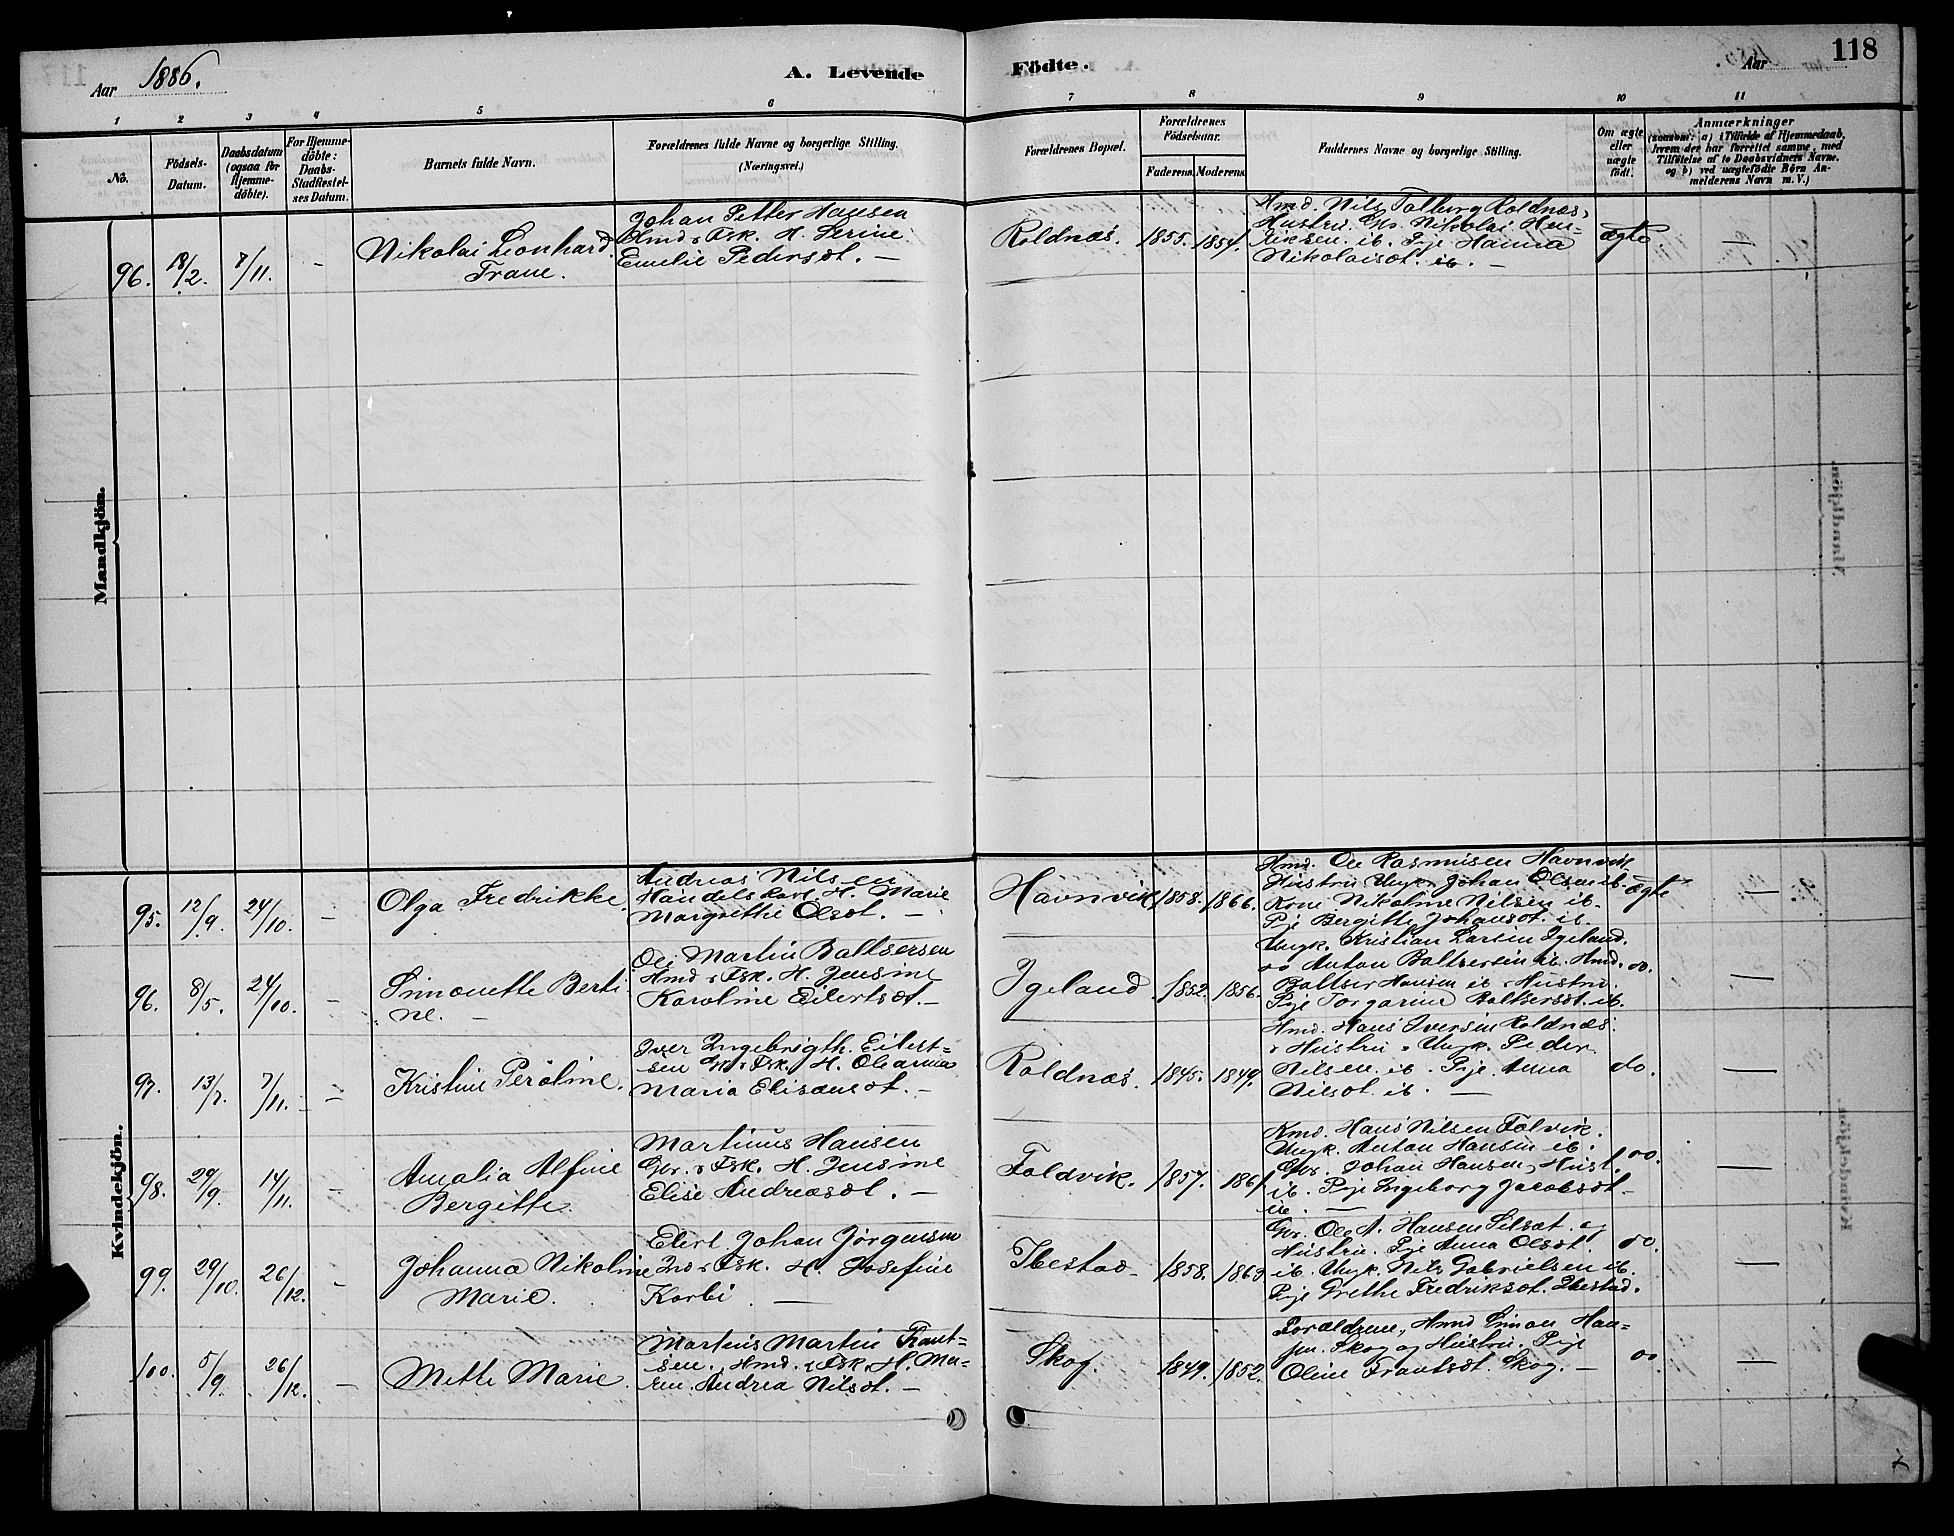 Aar 1886.
A. Levende
Födte.
Aar
118
1 2 3 4 5 6 7 8 9 10 11
No.
Födsels-
Datum.
Daabsdatum
(ogsaa for
Hjemme-
döbte).
For Hjemme-
döbte:
Daabs-
Stadfæstel-
ses Datum.
Barnets fulde Navn.
Forældrenes fulde Navne og borgerlige Stilling.
(Næringsvei.)
Forældrenes Bopæl.
Forældrenes
Födselsaar.
Faderens. Moderens.
Faddernes Navne og borgerlige Stilling.
Om ægte
eller
uægte
født.
Anmærkninger
(saasom: a) i Tilfælde af Hjemmedaab,
hvem der har forrettet samme, med
Tilföielse af to Daabsvidners Navne.
og b) ved uægtefödte Börn An-
melderens Navn m. V.)
Mandkjön.
96. 18/2. 7/11. –
Nikolai Leonhard
Frane.
Johan Petter Hansen
Hmd & Fsk. H. Serine
Emelie Pedersdt. –
Roldnæs. 1855. 1854.
Hmd. Nils Tolberg Roldnæs,
Hustru. Gbr. Nikolai Hen-
riksen. ib. Pige Hanna
Nikolaisdt. ib. –
ægte. –
Kvindekjön.
95. 12/9. 24/10. –
Olga Fredrikke.
Andreas Nilsen
Handelskarl. H. Marie
Margrethe Olsdt. –
Havnvik 1858. 1866.
Hmd. Ole Rasmusen Havnvik
Hustru Ungk. Johan Olsen ib.
Kone Nikoline Nilsen ib.
Pige Bergitte Johansdt. ib.
ægte –
96. 8/5. 24/10. –
Simonette Berti
ne. –
Ole Martin Baltsersen
Hmd & Fsk. H. Jensine
Karoline Eilertsdt. –
Igeland 1852. 1856.
Ungk. Kristian Larsen Igeland.
do Anton Baltsersen ib. Hmd.
Baltser Hansen ib & Hustru.
Pige Torgarine Baltsersdt. ib.
do. –
97. 13/7. 7/11. –
Kristine Peroline.
Iver Ingebrigth. Eilert-
sen Gbr & Fsk. H. Oleanna
Maria Elisæusdt. –
Roldnæs. 1845. 1849.
Hmd. Hans Iversen Roldnæs.
& Hustru & Ungk. Peder
Nilsen. ib. Pige. Anna
Nilsdt. ib. –
do. –
98. 29/9. 14/11. –
Amalia Alfine
Bergitte
Martinus Hansen
Gbr. & Fsk. H. Jensine
Elise Andreasdt. –
Foldvik. 1857. 1861.
Kmd. Hans Nilsen Folvik.
Ungk. Anton Hansen ib.
Gbr. Johan Hansen & Hust.
ib. Pige Ingeborg Jacobsdt
ib. –
do. –
99. 29/10. 26/12. –
Johanna Nikoline
Marie.
Elert Johan Jørgensen
Ind & Fsk. H. Josefine
Korbi. –
Ibestad 1858. 1863
Gbr. Ole A. Hansen Selsæt. og
Hustru. Pige Anna Olsdt.
ib. Ungk. Nils Gabrielsen ib.
Pige Grethe Fredriksdt. Ibestad.
do. –
100. 5/9. 26/12. –
Mette Marie.
Martins Martin Frant-
sen. Hmd. & Fsk H. Ma-
ren Andrea Nilsdt. –
Skog. 1849. 1852.
Forældrene, Hmd Simon Han-
sen. Skog og Hustru. Pige
Oline Frantsdt. Skog. –
do –